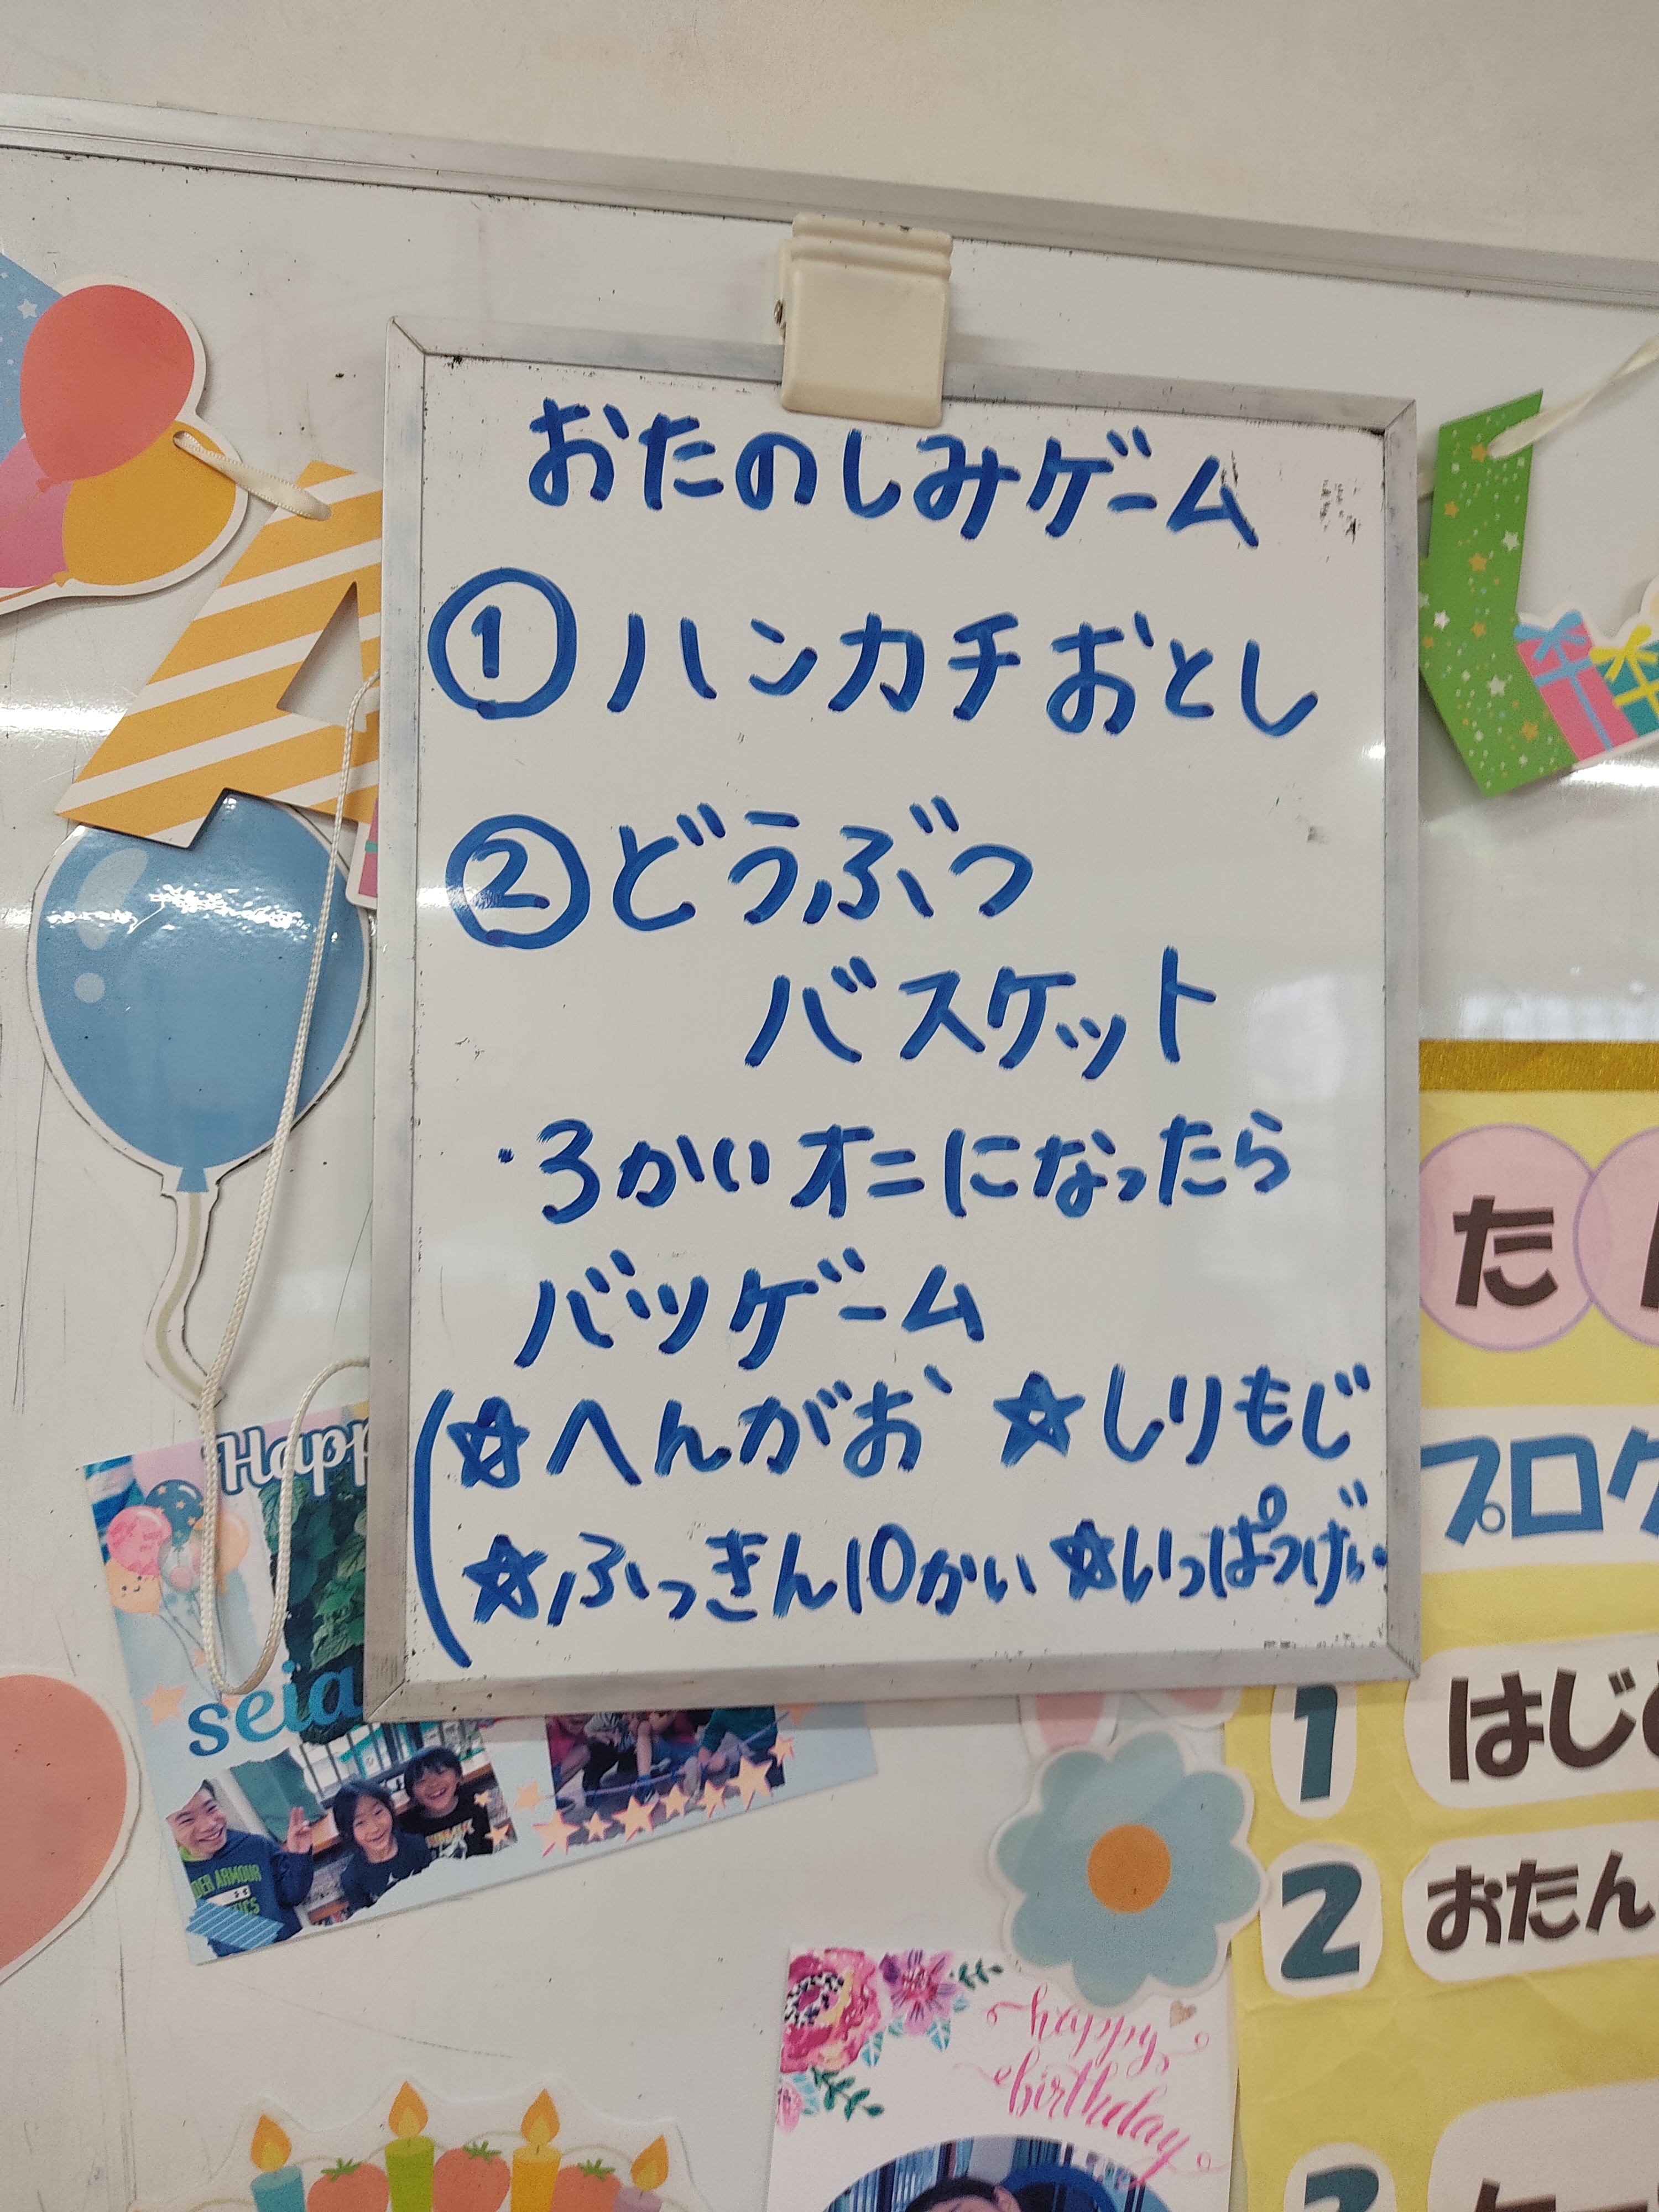 おたのしみゲーム
① ハンカチおとし
② どうぶつ
バスケット
・3かいオニになったら
バツゲーム
☆へんがお ☆しりもじ
☆ふっきん10かい ☆いっぱつげい
A
L
Happ
seia
UNDER ARMOUR
た
プログ
1 はじ
2 おたん
3
happy
birthday